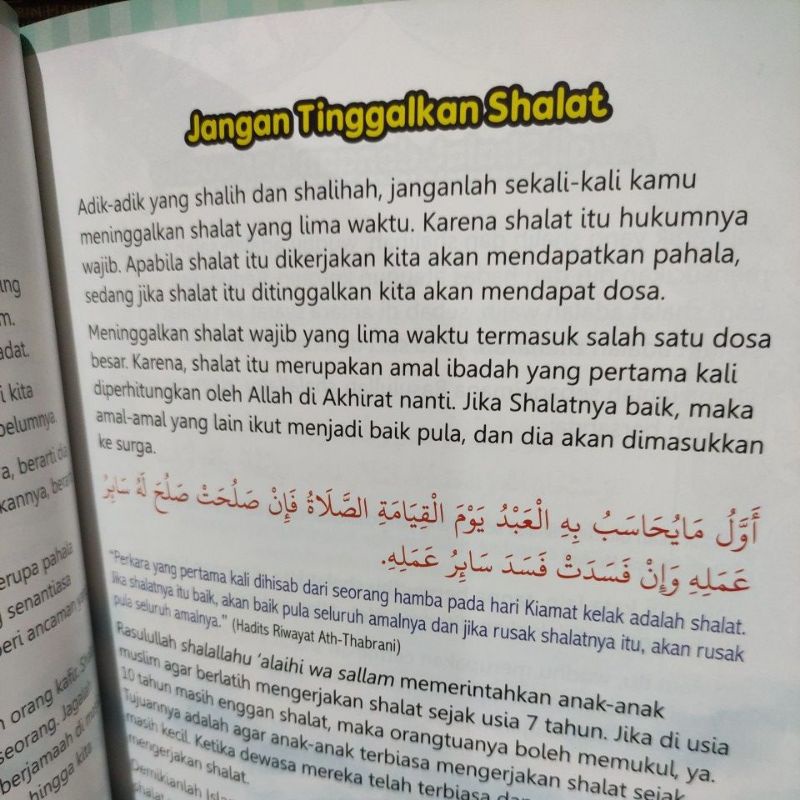 Jangan Tinggalkan Shalat
Adik-adik yang shalih dan shalihah, janganlah sekali-kali kamu
meninggalkan shalat yang lima waktu. Karena shalat itu hukumnya
wajib. Apabila shalat itu dikerjakan kita akan mendapatkan pahala,
sedang jika shalat itu ditinggalkan kita akan mendapat dosa.
Meninggalkan shalat wajib yang lima waktu termasuk salah satu dosa
besar. Karena, shalat itu merupakan amal ibadah yang pertama kali
diperhitungkan oleh Allah di Akhirat nanti. Jika Shalatnya baik, maka
amal-amal yang lain ikut menjadi baik pula, dan dia akan dimasukkan
ke surga.
أَوَّلُ مَايُحَاسَبُ بِهِ الْعَبْدُ يَوْمَ الْقِيَامَةِ الصَّلَاةُ فَإِنْ صَلُحَتْ صَلُحَ لَهُ سَائِرُ
عَمَلِهِ وَإِنْ فَسَدَتْ فَسَدَ سَائِرُ عَمَلِهِ.
"Perkara yang pertama kali dihisab dari seorang hamba pada hari Kiamat kelak adalah shalat.
Jika shalatnya itu baik, akan baik pula seluruh amalnya dan jika rusak shalatnya itu, akan rusak
pula seluruh amalnya." (Hadits Riwayat Ath-Thabrani)
Rasulullah shalallahu 'alaihi wa sallam memerintahkan anak-anak
muslim agar berlatih mengerjakan shalat sejak usia 7 tahun. Jika di usia
10 tahun masih enggan shalat, maka orangtuanya boleh memukul, ya.
Tujuannya adalah agar anak-anak terbiasa mengerjakan shalat sejak
masih kecil. Ketika dewasa mereka telah terbiasa
mengerjakan shalat.
Demikianlah